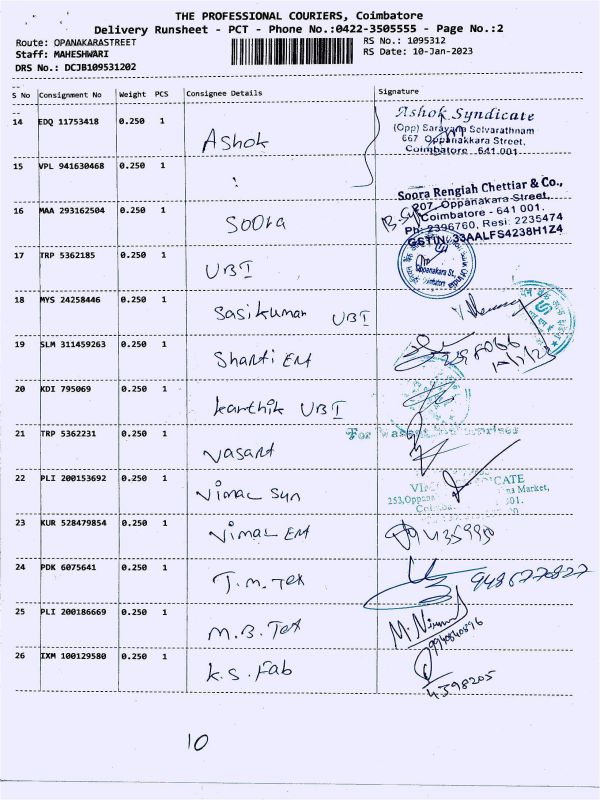 THE PROFESSIONAL COURIERS, Coimbatore
Delivery Runsheet - PCT - Phone No.:0422-3505555 - Page No.:2
Route: OPANAKARASTREET
RS No.: 1095312
Staff: MAHESHWARI
RS Date: 10-Jan-2023
DRS No.: DCJB109531202
S No Consignment No Weight PCS Consignee Details Signature
14 EDQ 11753418 0.250 1 Ashok
Ashok Syndicate
(Opp) Saravana Selvarathnam
667 Oppanakkara Street,
Coimbatore - 641 001
15 VPL 941630468 0.250 1 :
Soora Rengiah Chettiar & Co.,
207, Oppanakara Street,
Coimbatore - 641 001.
Ph: 2396760, Resi: 2235474
GSTIN: 33AALFS4238H1Z4
16 MAA 293162504 0.250 1 Soora
17 TRP 5362185 0.250 1 UBI
Oppanakara St.,
Coimbatore
18 MYS 24258446 0.250 1 Sasikumar UBI
19 SLM 311459263 0.250 1 Shanti EM
20 KDI 795069 0.250 1 Karthik UBI
21 TRP 5362231 0.250 1 Vasant
For
22 PLI 200153692 0.250 1 Vimal Syn
253,Oppana
Market,
23 KUR 528479854 0.250 1 Vimal EM
24 PDK 6075641 0.250 1 J.M. Tex
25 PLI 200186669 0.250 1 M.B. Tex
9940840896
26 IXM 100129580 0.250 1 K.S. Fab
4598205
10